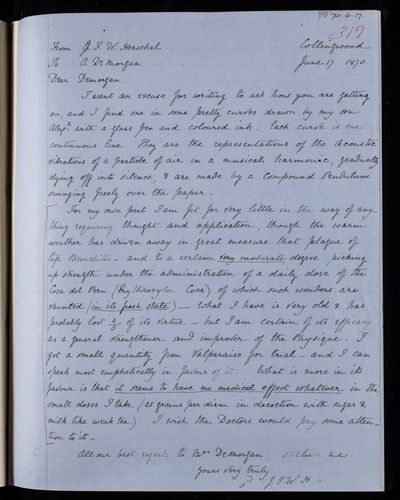 70. 6. 17.
319
From J. F. W. Herschel Collingwood
To A De Morgan June 17 1870
Dear Demorgan
I want an excuse for writing to ask how you are getting
on and I find one in some pretty curves drawn by my son
Alexr with a glass pen and coloured ink. Each curve is one
continuous line. They are the representations of the acoustic
vibrations of a particle of air in a musical harmonic, gradually
dying off into silence, & are made by a compound Pendulum
swinging freely over the paper.
For my own part I am fit for very little in the way of any-
thing requiring thought and application, though the warm
weather has driven away in great measure that plague of
life Bronchitis - and to a certain very moderate degree picking
up strength under the administration of a daily dose of the
Coca del Peru (Erythroxylon Coca) of which such wonders are
vaunted (in its fresh state) - What I have is very old & has
probably lost of its virtue - but I am certain of its efficacy
as a general strengthener and improver of the Physique. I
got a small quantity from Valparaiso for trial - and I can
speak most emphatically in favour of it. What is more in its
favour is that it seems to have no medical effect whatever in the
small doses I take (25 grains per diem in decoction with sugar &
milk like weak tea) I wish the Doctors would pay some atten-
tion to it -
All our best regards to Mrs DeMorgan Believe me
yours very truly
J. F. W. H -